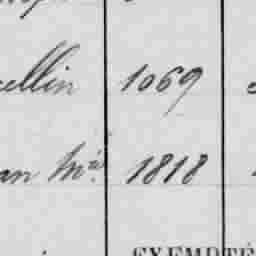 ellin 1069
an Mie 1818
EXEMPTÉ